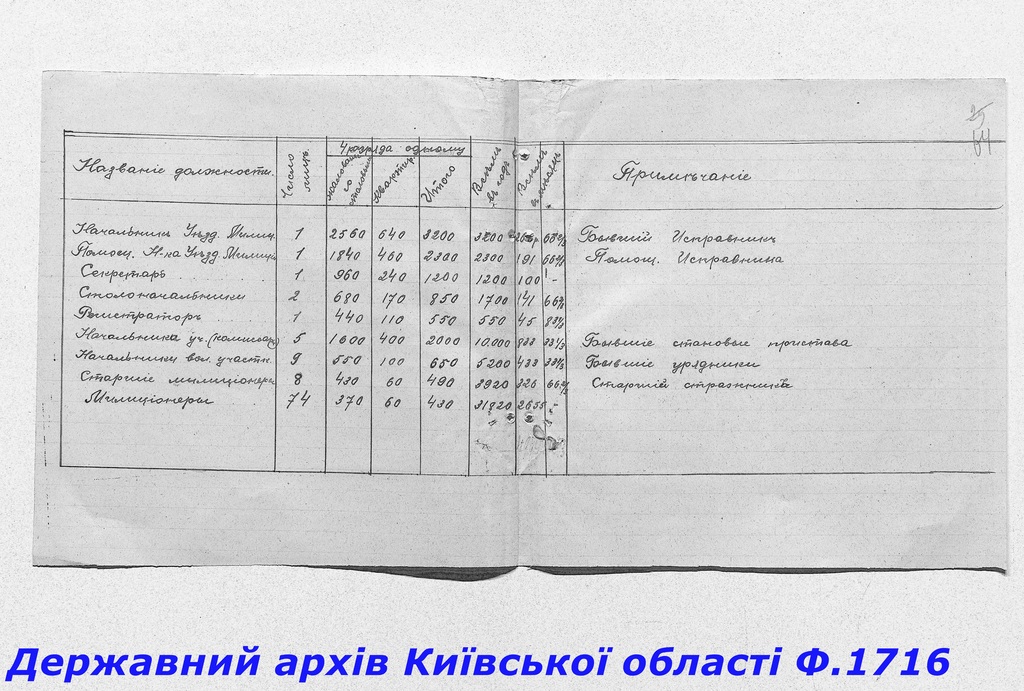 25
64
4 разряда одному
Названіе должности. Число лицъ. Жалованья столовыя Квартир. Итого Всѣмъ въ годъ Всѣмъ въ мѣсяцъ Примѣчаніе
Начальникъ Уѣзд. Милиц. 1 2560 640 3200 3200 66⅔ Бывшій Исправникъ
Помощ. Н-ка Уѣзд. Милиц. 1 1840 460 2300 2300 191 66⅔ Помощ. Исправника
Секретарь 1 960 240 1200 1200 100 -
Столоначальники 2 680 170 850 1700 141 66⅔
Регистраторъ 1 440 110 550 550 45 83⅓
Начальники уч. (комиссары) 5 1600 400 2000 10.000 833 33⅓ Бывшіе становые пристава
Начальники вол. участк. 9 550 100 650 5200 433 33⅓ Бывшіе урядники
Старшіе милиціонеры 8 430 60 490 3920 326 66⅔ Старшій стражникъ
Милиціонеры 74 370 60 430 31820 2655 -
Державний архів Київської області Ф.1716